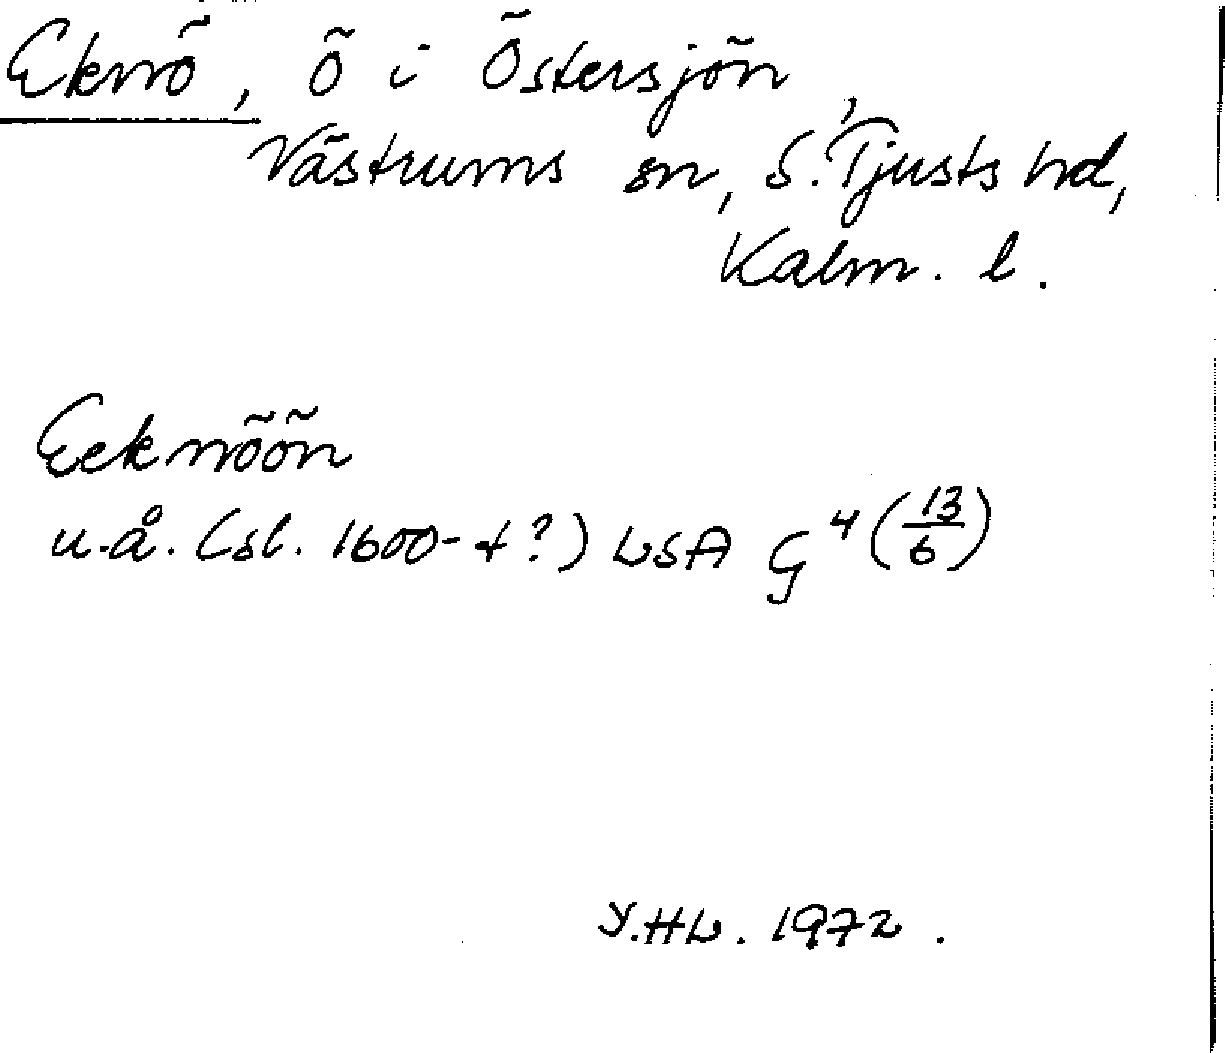 Eknö, ö i Östersjön,
Västrums sn, S. Tjusts hd,
Kalm. l.
Eeknöön
u.å. (sl. 1600-t?) LSA G⁴ (13/6)
Y.HL. 1972.